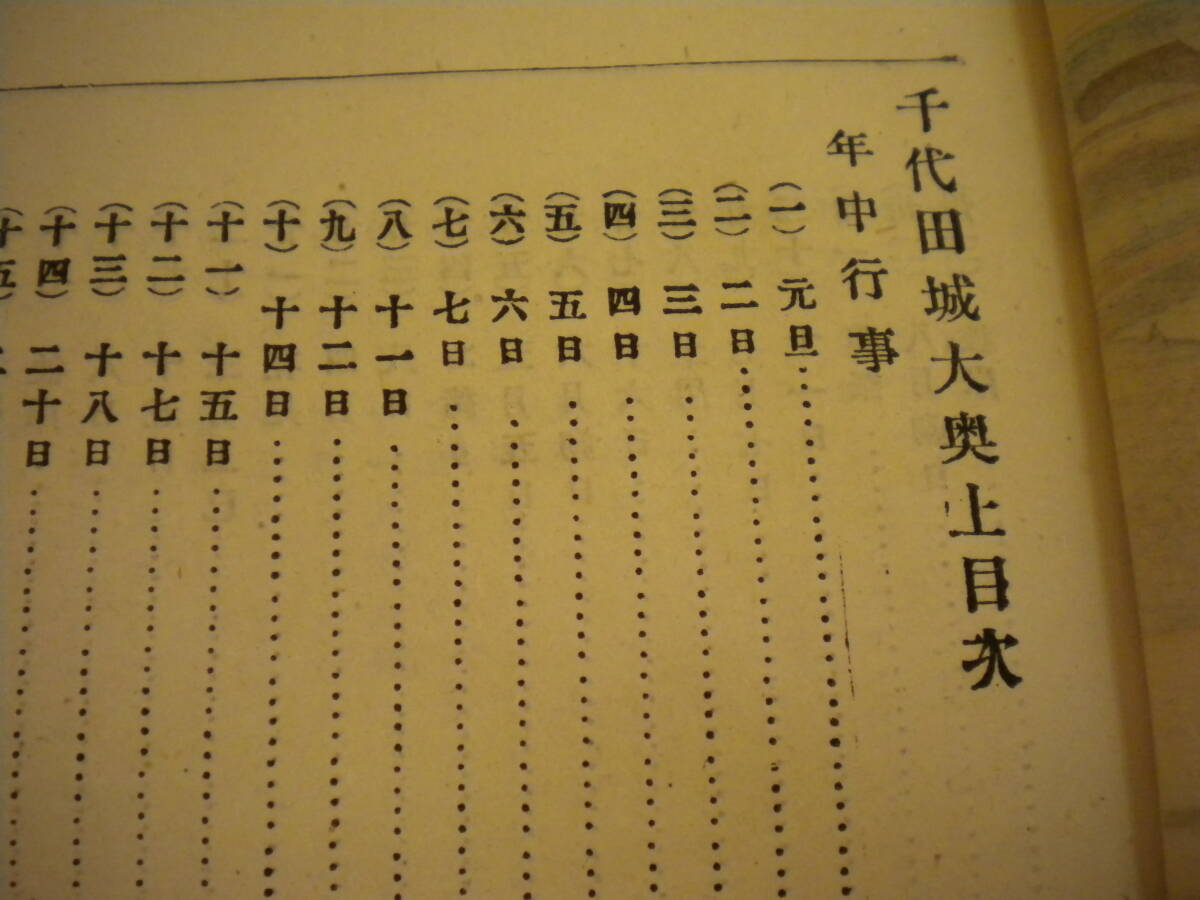 千代田城大奥上目次
年中行事
(一) 元旦
(二) 二日
(三) 三日
(四) 四日
(五) 五日
(六) 六日
(七) 七日
(八) 十一日
(九) 十二日
(十) 十四日
(十一) 十五日
(十二) 十七日
(十三) 十八日
(十四) 二十日
(十五)